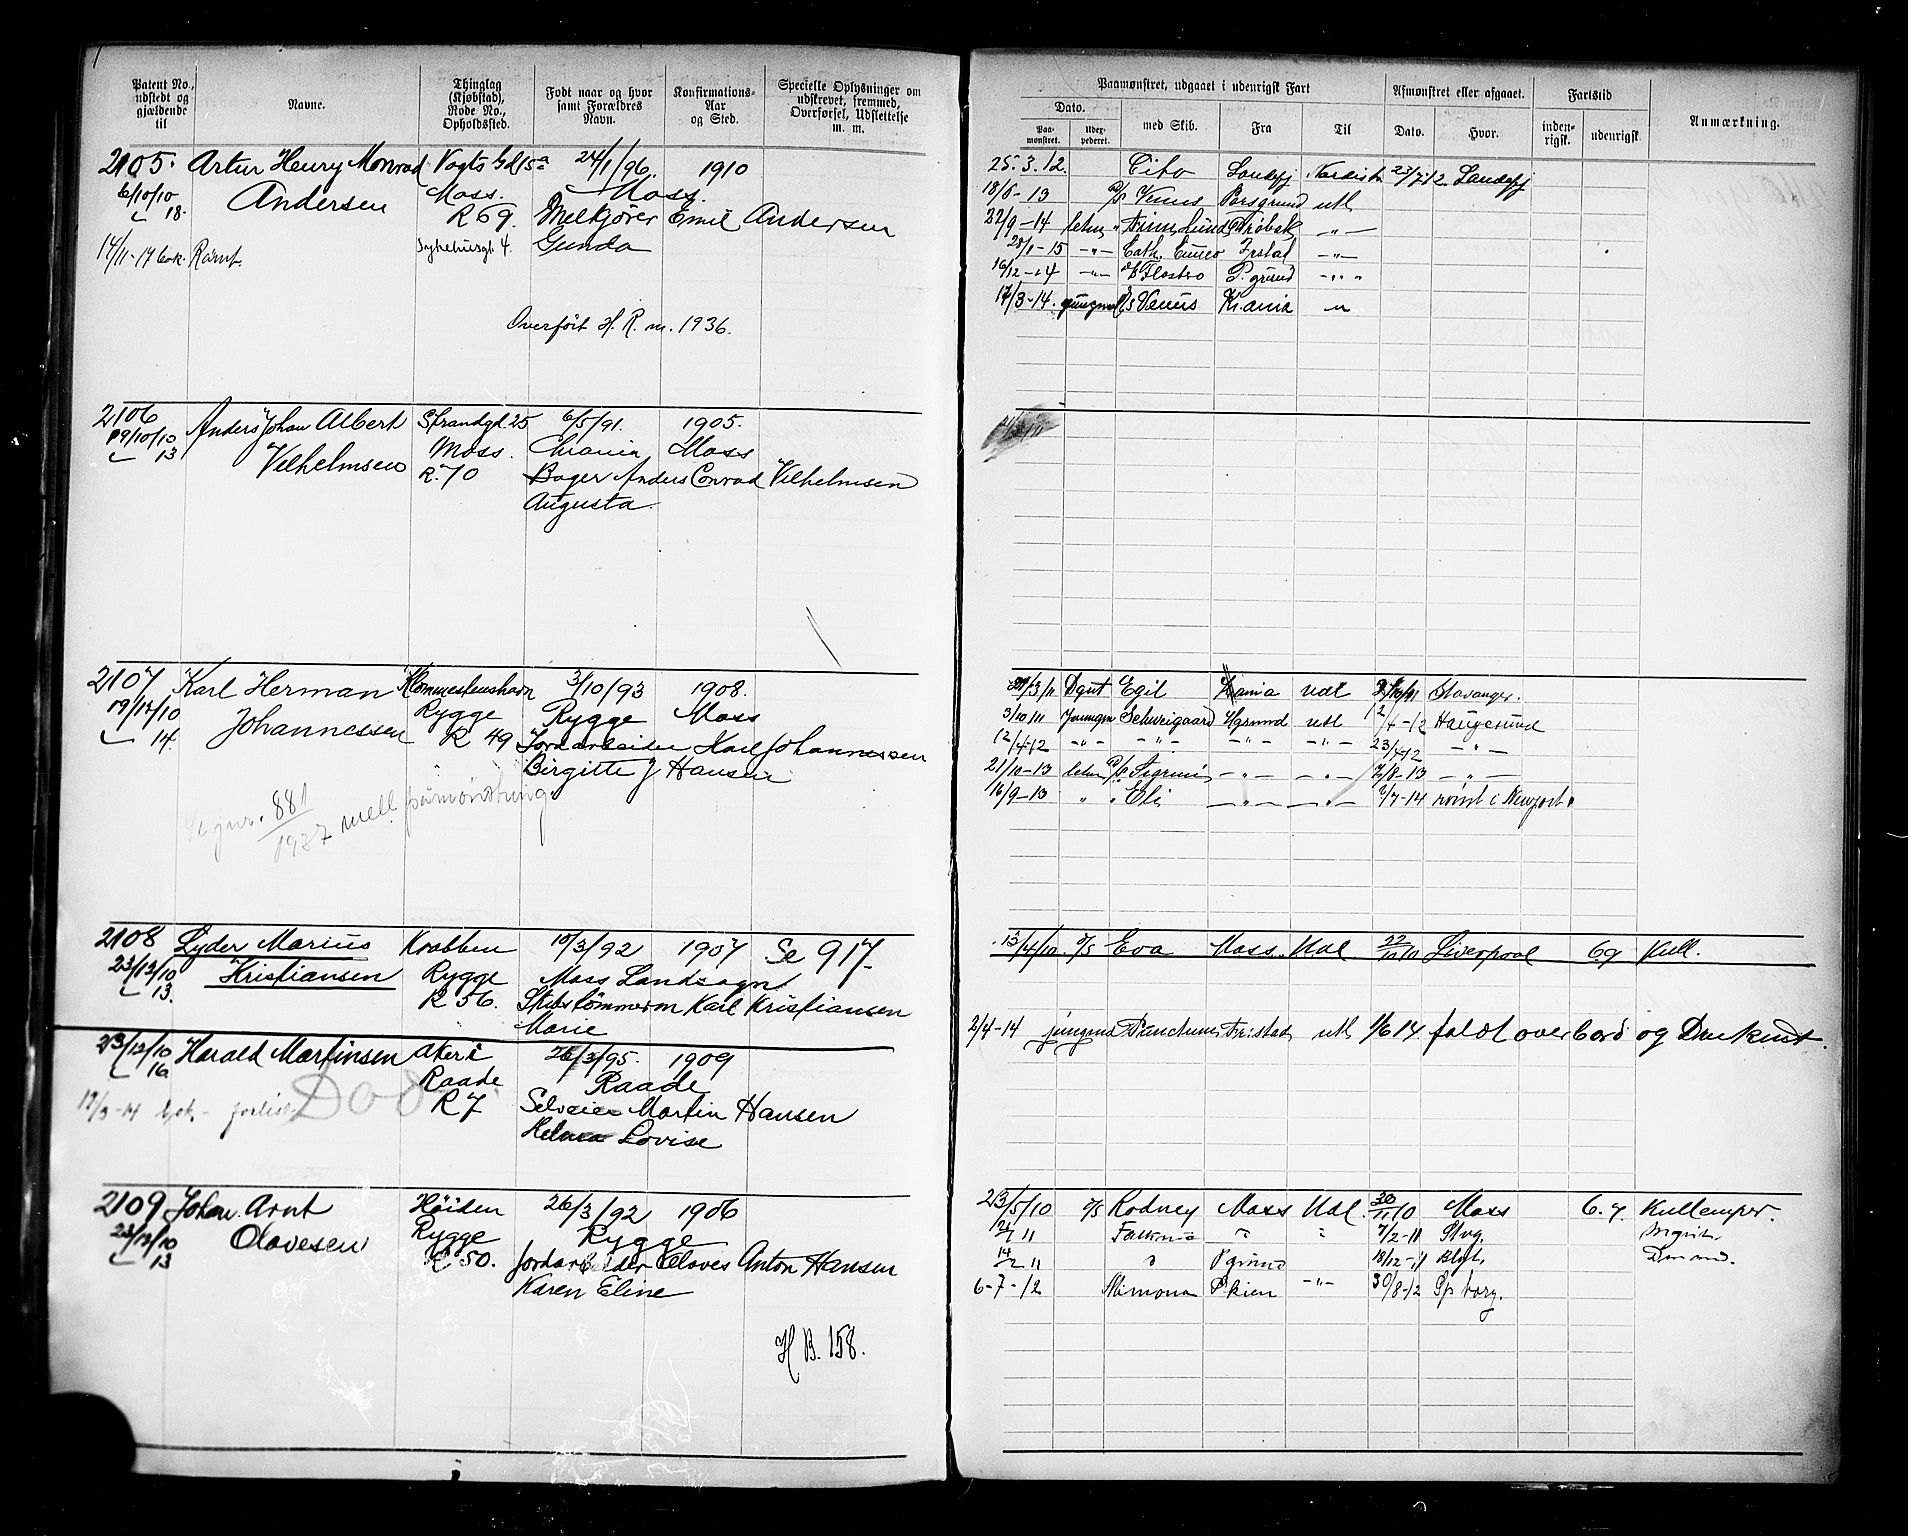 Patent No., udstedt og gjældende til
Navne.
Thinglag (Kjøbstad), Rode No., Opholdssted.
Født naar og hvor samt Forældres Navn.
Konfirmations- Aar og Sted.
Specielle Oplysninger om udskrevet, fremmed, Overførsel, Udslettelse m. m.
2105. Artur Henry Monrad Vogts Gd 15a 24/1/96. 1910
6/10/10 Andersen Moss. Moss.
18. R 69. Melkjører Emil Andersen
14/11-17 bok. Rømt. Sykehusgt. 4. Gunda
Overført H. R. m. 1936.
2106 Anders Johan Albert Strandgd. 25 6/5/91. 1905.
19/10/10 Vilhelmsen Moss. Chrania Moss
13 R. 70 Bager Anders Conrad Vilhelmsen
Augusta.
2107 Karl Herman 3/10/93 1908.
19/12/10 Johannessen Rygge Rygge Moss
14. R 49 Jordarbeider Karl Johannessen
Birgitte J Hansen
jnr. 881
1937 mell påmønstring
2108 Lyder Marius Krabben 10/3/92 1907 Se 917
23/12/10 Kristiansen Rygge Moss Landsogn
13. R 56. Skibstømmerm Karl Kristiansen
Marie
23/12/10 Harald Martinsen Akeri 26/3/95. 1909
16. Raade Raade
Død R 7 Selveier Martin Hansen
12/3-14 bok - forlist
Helma Lovise
2109 Johan Arnt Høiden 26/3/92 1906
23/12/10 Olavesen Rygge Rygge
13 R 50. Jordarbeider Olaves Anton Hansen
Karen Eline
H B. 158.
Paamønstret, udgaaet i udenrigsk Fart
Afmønstret eller afgaaet.
Fartstid
Anmærkning.
Dato.
Paa- mønstret.
Uder- pederet.
med Skib.
Fra
Til
Dato.
Hvor.
inden- rigsk.
udenrigsk
25. 3. 12. Cito Landsj 23/7-12 Landsj
18/8-13 Venus Porsgrund utl
22/9-14 letm
28/1-15 -"- Cath.
16/12-14 -"- P.grund -"-
17/3-14. jungmd Venus Krania
Dgut Egil Krania udl Stavanger.
3/10/11 Jungm Schweigaard Pgrund utl 12/4-12 Haugesund
12/4-12 -"- -"- -"- -"- 23/4-12 -"-
21/10-13 letm Sigrun -"- -"- 2/8-13 -"-
16/9-13 " Eli -"- -"- 2/7-14 rømt i Newport
13/4/10 D/S Eva Moss. Udl 22/10/11 Liverpool 69 Kull.
2/4-14 jungmd utl 1/6 14 faldt overbord og Druknet.
23/5/10 D/S Rodney Moss Udl. 30/11/10 Moss 6.7. Kullemper.
7/2-11
18/12-11
6-7-12 Mimona Skien -"- 30/8-12 Sp borg.